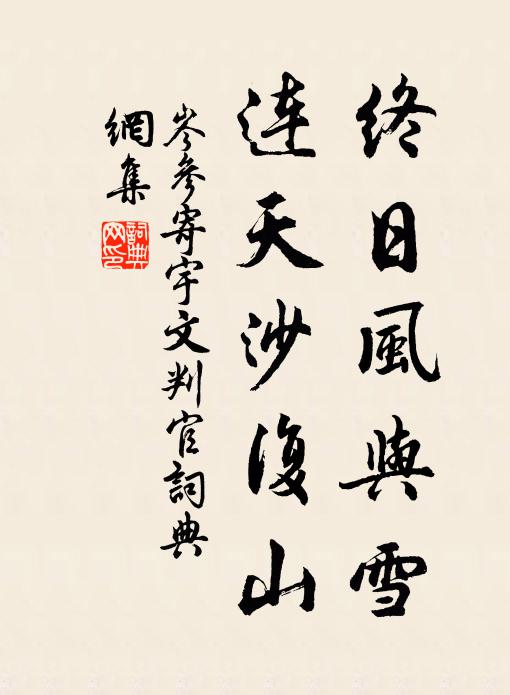 終日風與雪
連天沙復山
岑參寄宇文判官詞典
網集
詞典網印